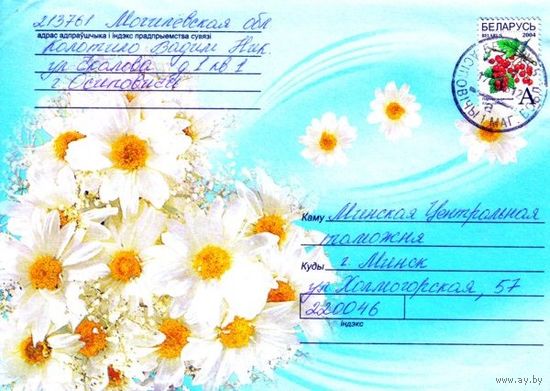 213761 Могилёвская обл
адрас адпраўшчыка і індэкс прадпрыемства сувязі
Колотило Вадим Ник.
г. Осиповичи
БЕЛАРУСЬ
BELARUS 2004
A
Каму Минская Центральная
таможня
Куды г Минск
ул Холмогорская, 57
220046
індэкс
www.ay.by